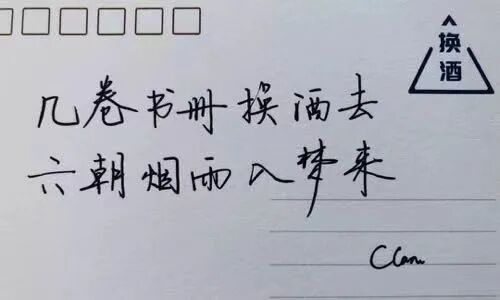 换酒
几卷书册换酒去
六朝烟雨入梦来